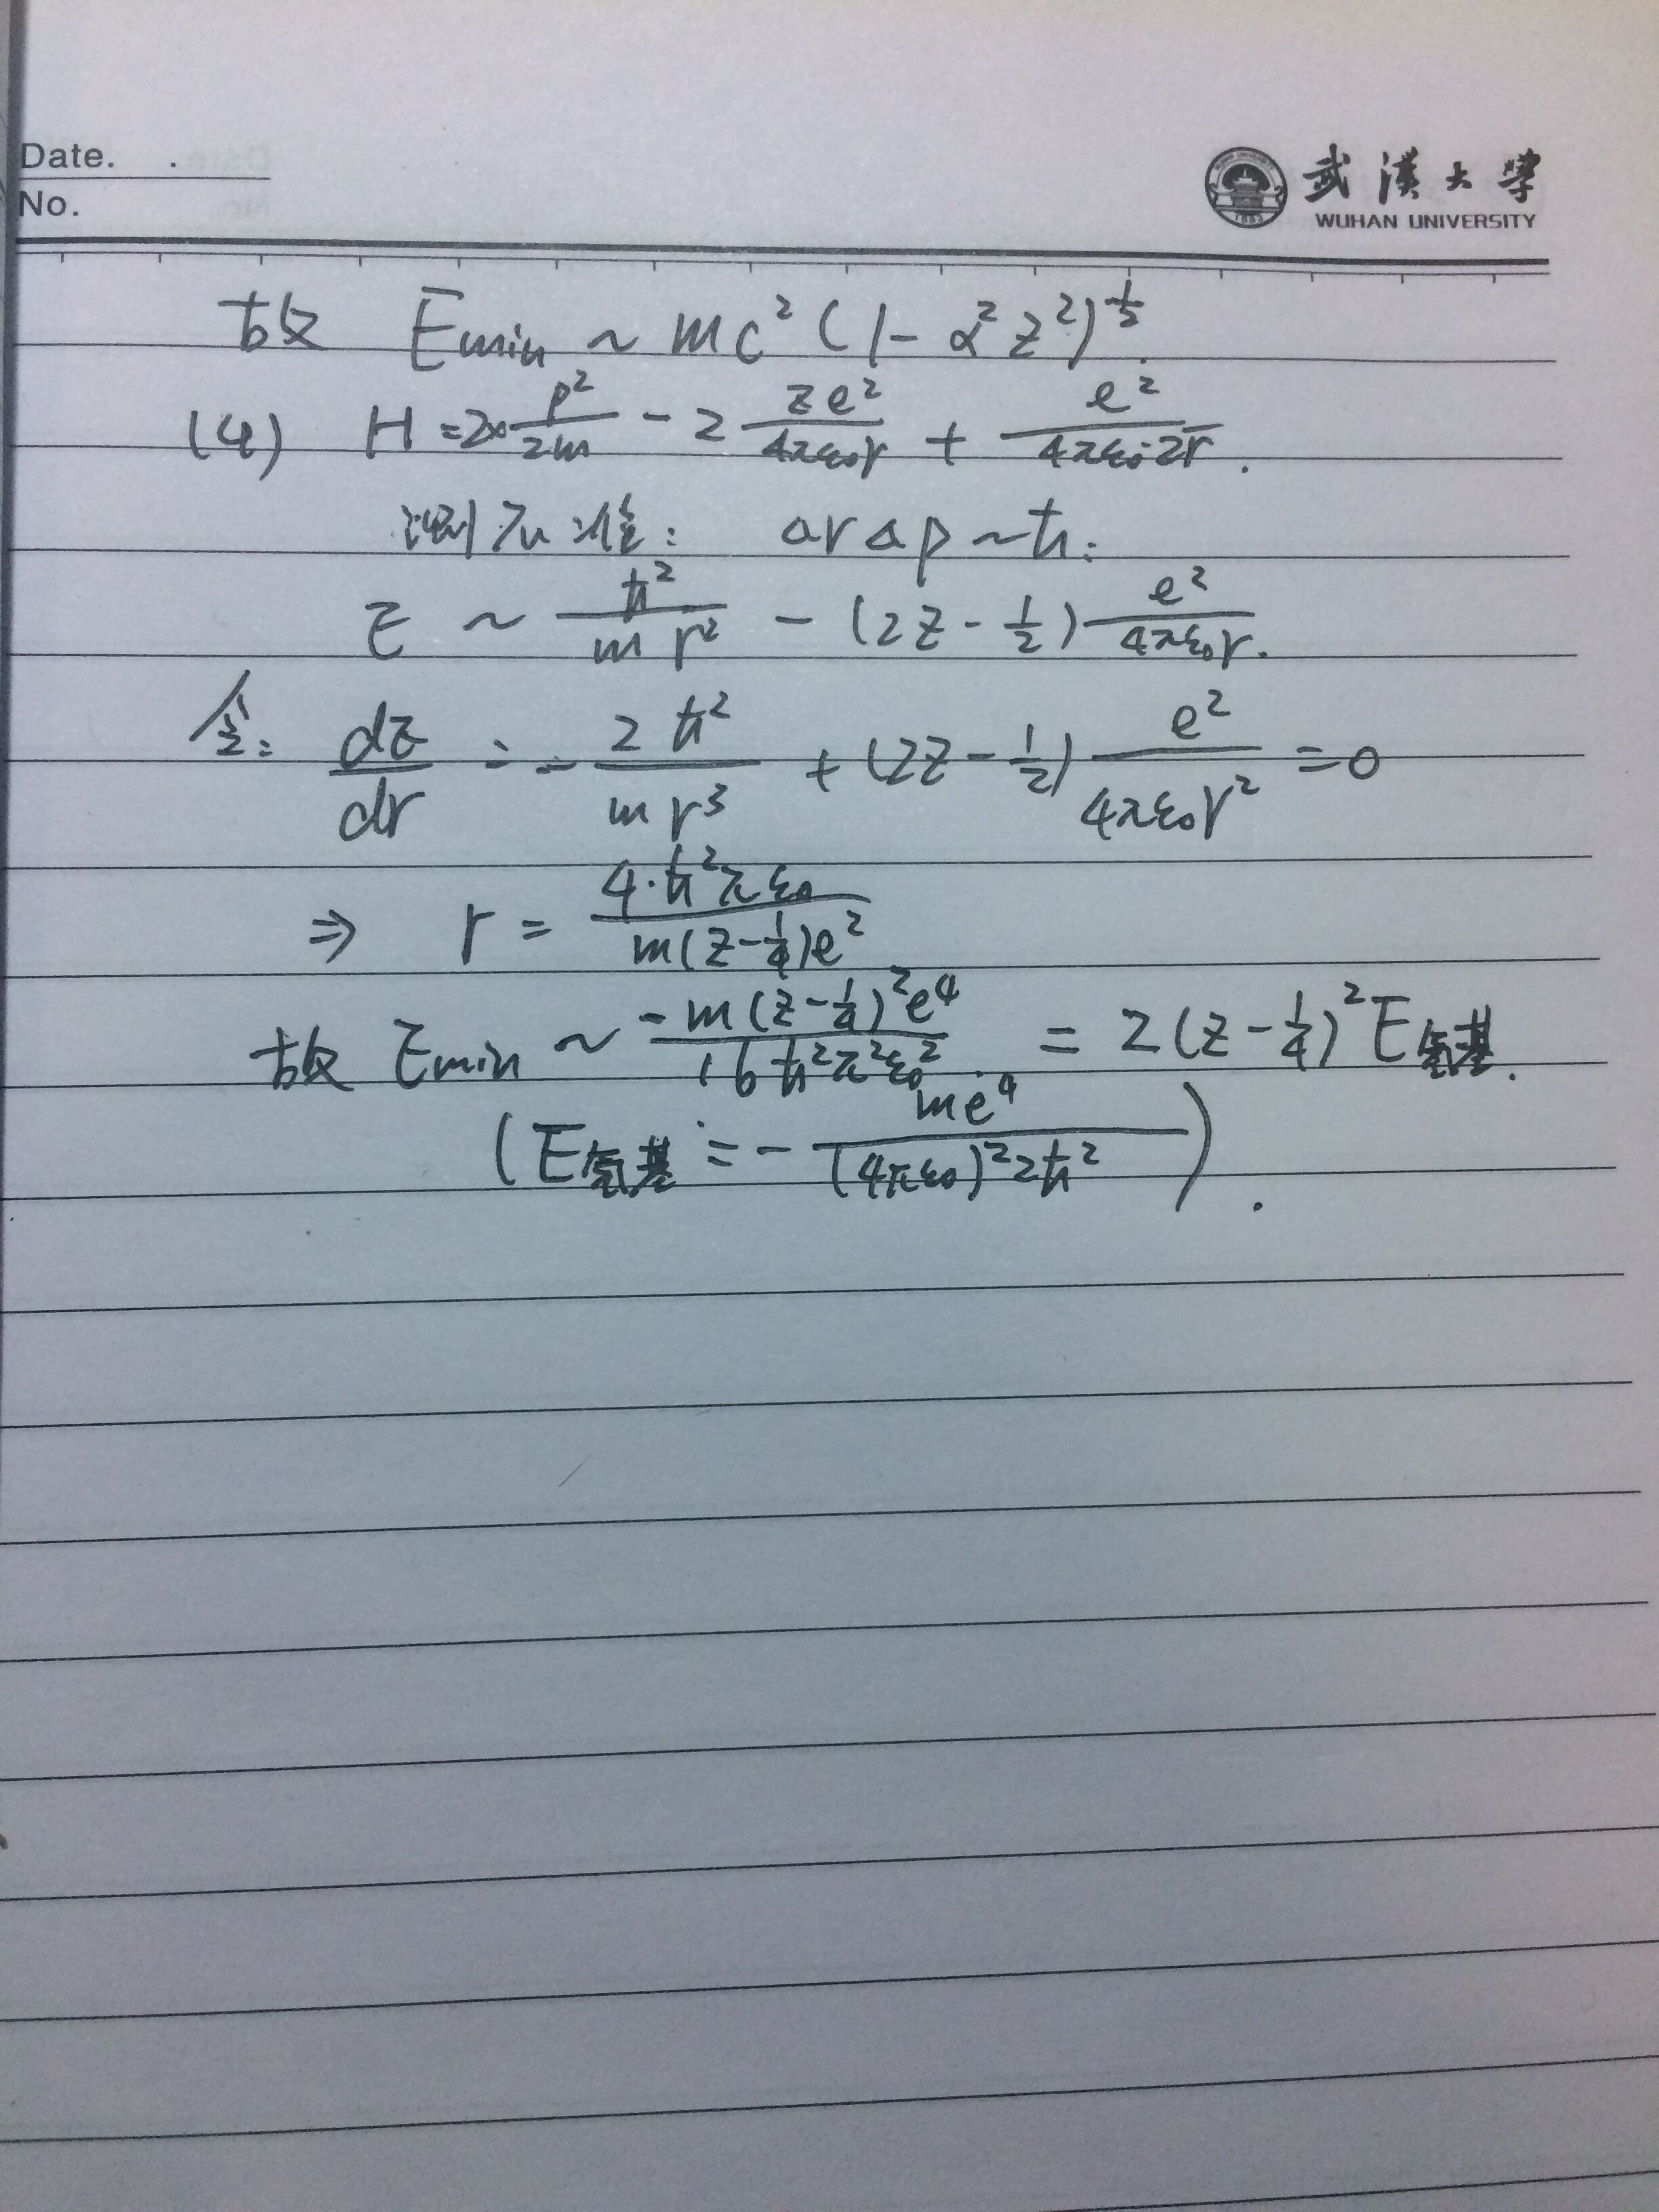 Date. .
No.
武漢大學
WUHAN UNIVERSITY
1893
故 Emin ~ mc²(1-α²z²)^½.
(4) H=2×p²/2m - 2 ze²/4πε₀r + e²/4πε₀·2r.
测不准: ΔrΔp~ħ.
E ~ ħ²/mr² - (2z-½) e²/4πε₀r.
令: dE/dr = - 2ħ²/mr³ + (2z-½) e²/4πε₀r² =0
⇒ r = 4·ħ²πε₀/m(z-¼)e²
故 Emin ~ -m(z-¼)²e⁴/16ħ²π²ε₀² = 2(z-¼)²E氢基.
(E氢基 = - me⁴/(4πε₀)²2ħ²).